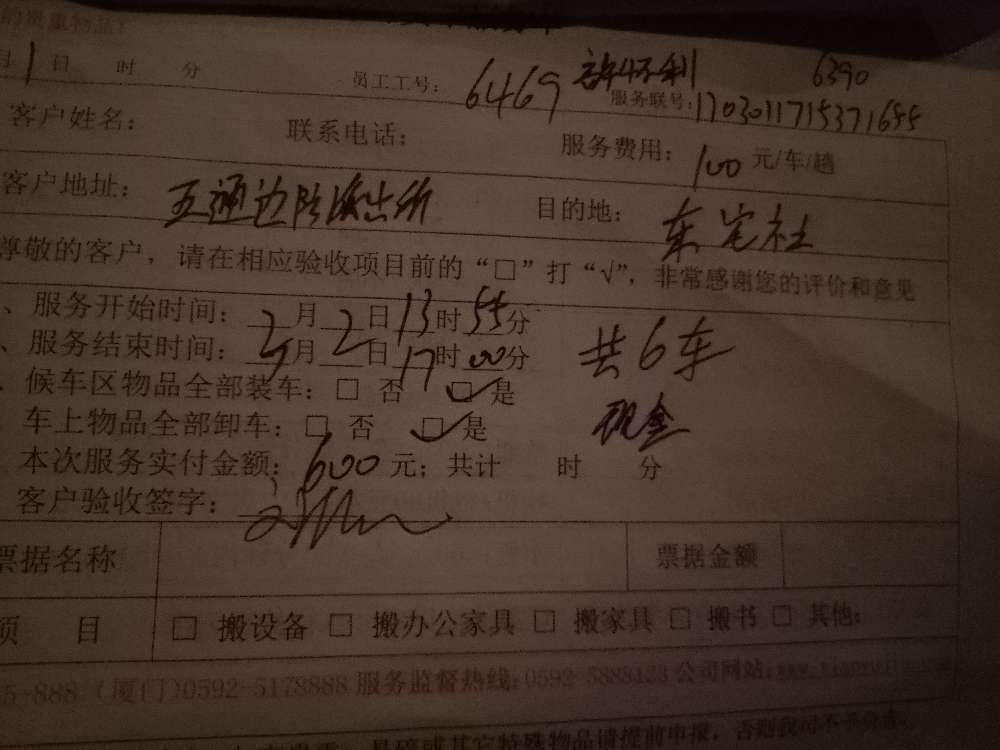 的贵重物品!
月1日 时 分 员工工号: 6469 6390
服务联号:1703011715371655
客户姓名: 联系电话: 服务费用: 100元/车/趟
客户地址: 五通边防派出所 目的地: 东宅社
尊敬的客户，请在相应验收项目前的“□”打“√”，非常感谢您的评价和意见
、服务开始时间: 2月2日13时55分
、服务结束时间: 2月2日17时00分 共6车
、候车区物品全部装车:□ 否 ☑是
车上物品全部卸车:□ 否 ☑是 现金
本次服务实付金额: 600元; 共计 时 分
客户验收签字:
票据名称 票据金额
项 目 □ 搬设备 □ 搬办公家具 □ 搬家具 □ 搬书 □ 其他:
5-888 (厦门)0592-5178888 服务监督热线:0592-5888133 公司网站:www.
易碎或其它特殊物品请提前申报，否则我司不予负责。